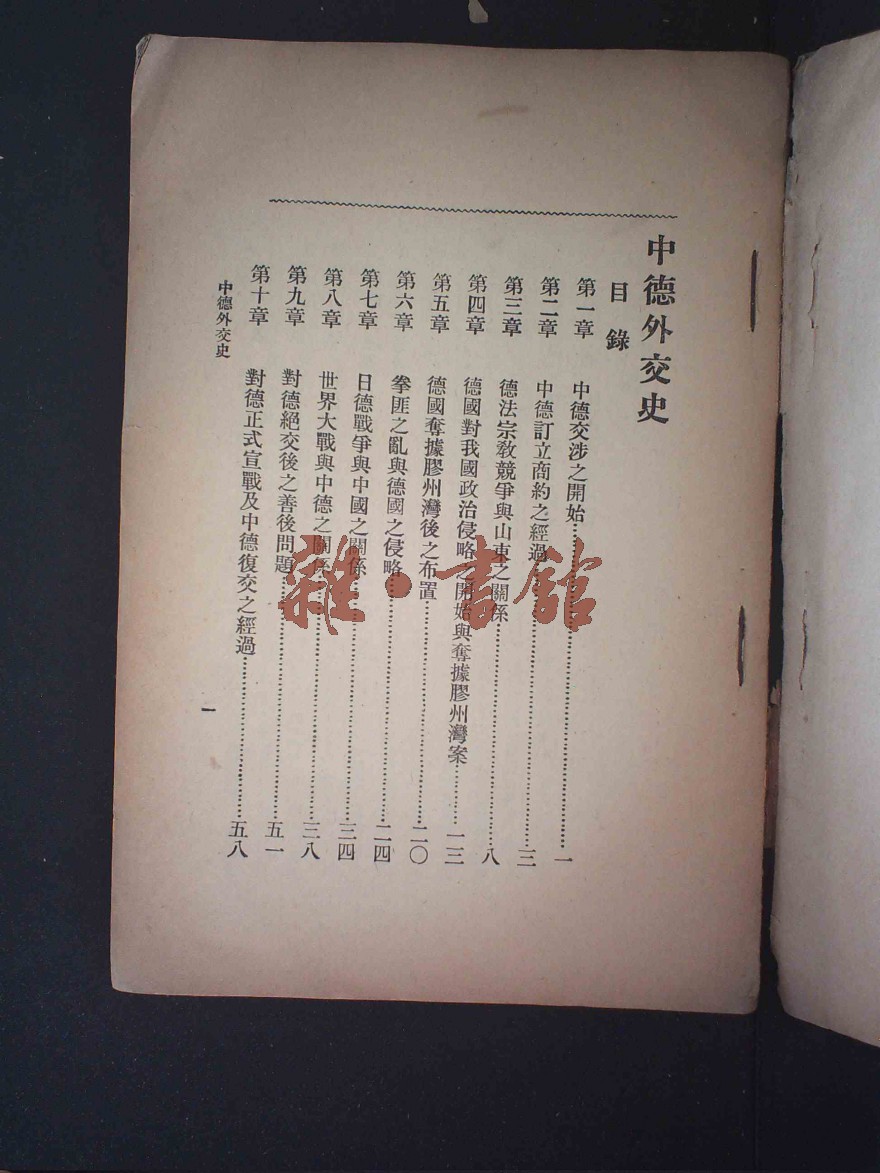 中德外交史
目錄
第一章 中德交涉之開始……一
第二章 中德訂立商約之經過……三
第三章 德法宗教競爭與山東之關係……八
第四章 德國對我國政治侵略之開始與奪據膠州灣案……一三
第五章 德國奪據膠州灣後之布置……二〇
第六章 拳匪之亂與德國之侵略……二四
第七章 日德戰爭與中國之關係……三四
第八章 世界大戰與中德之關係……三八
第九章 對德絕交後之善後問題……五一
第十章 對德正式宣戰及中德復交之經過……五八
中德外交史
一
雜·書館